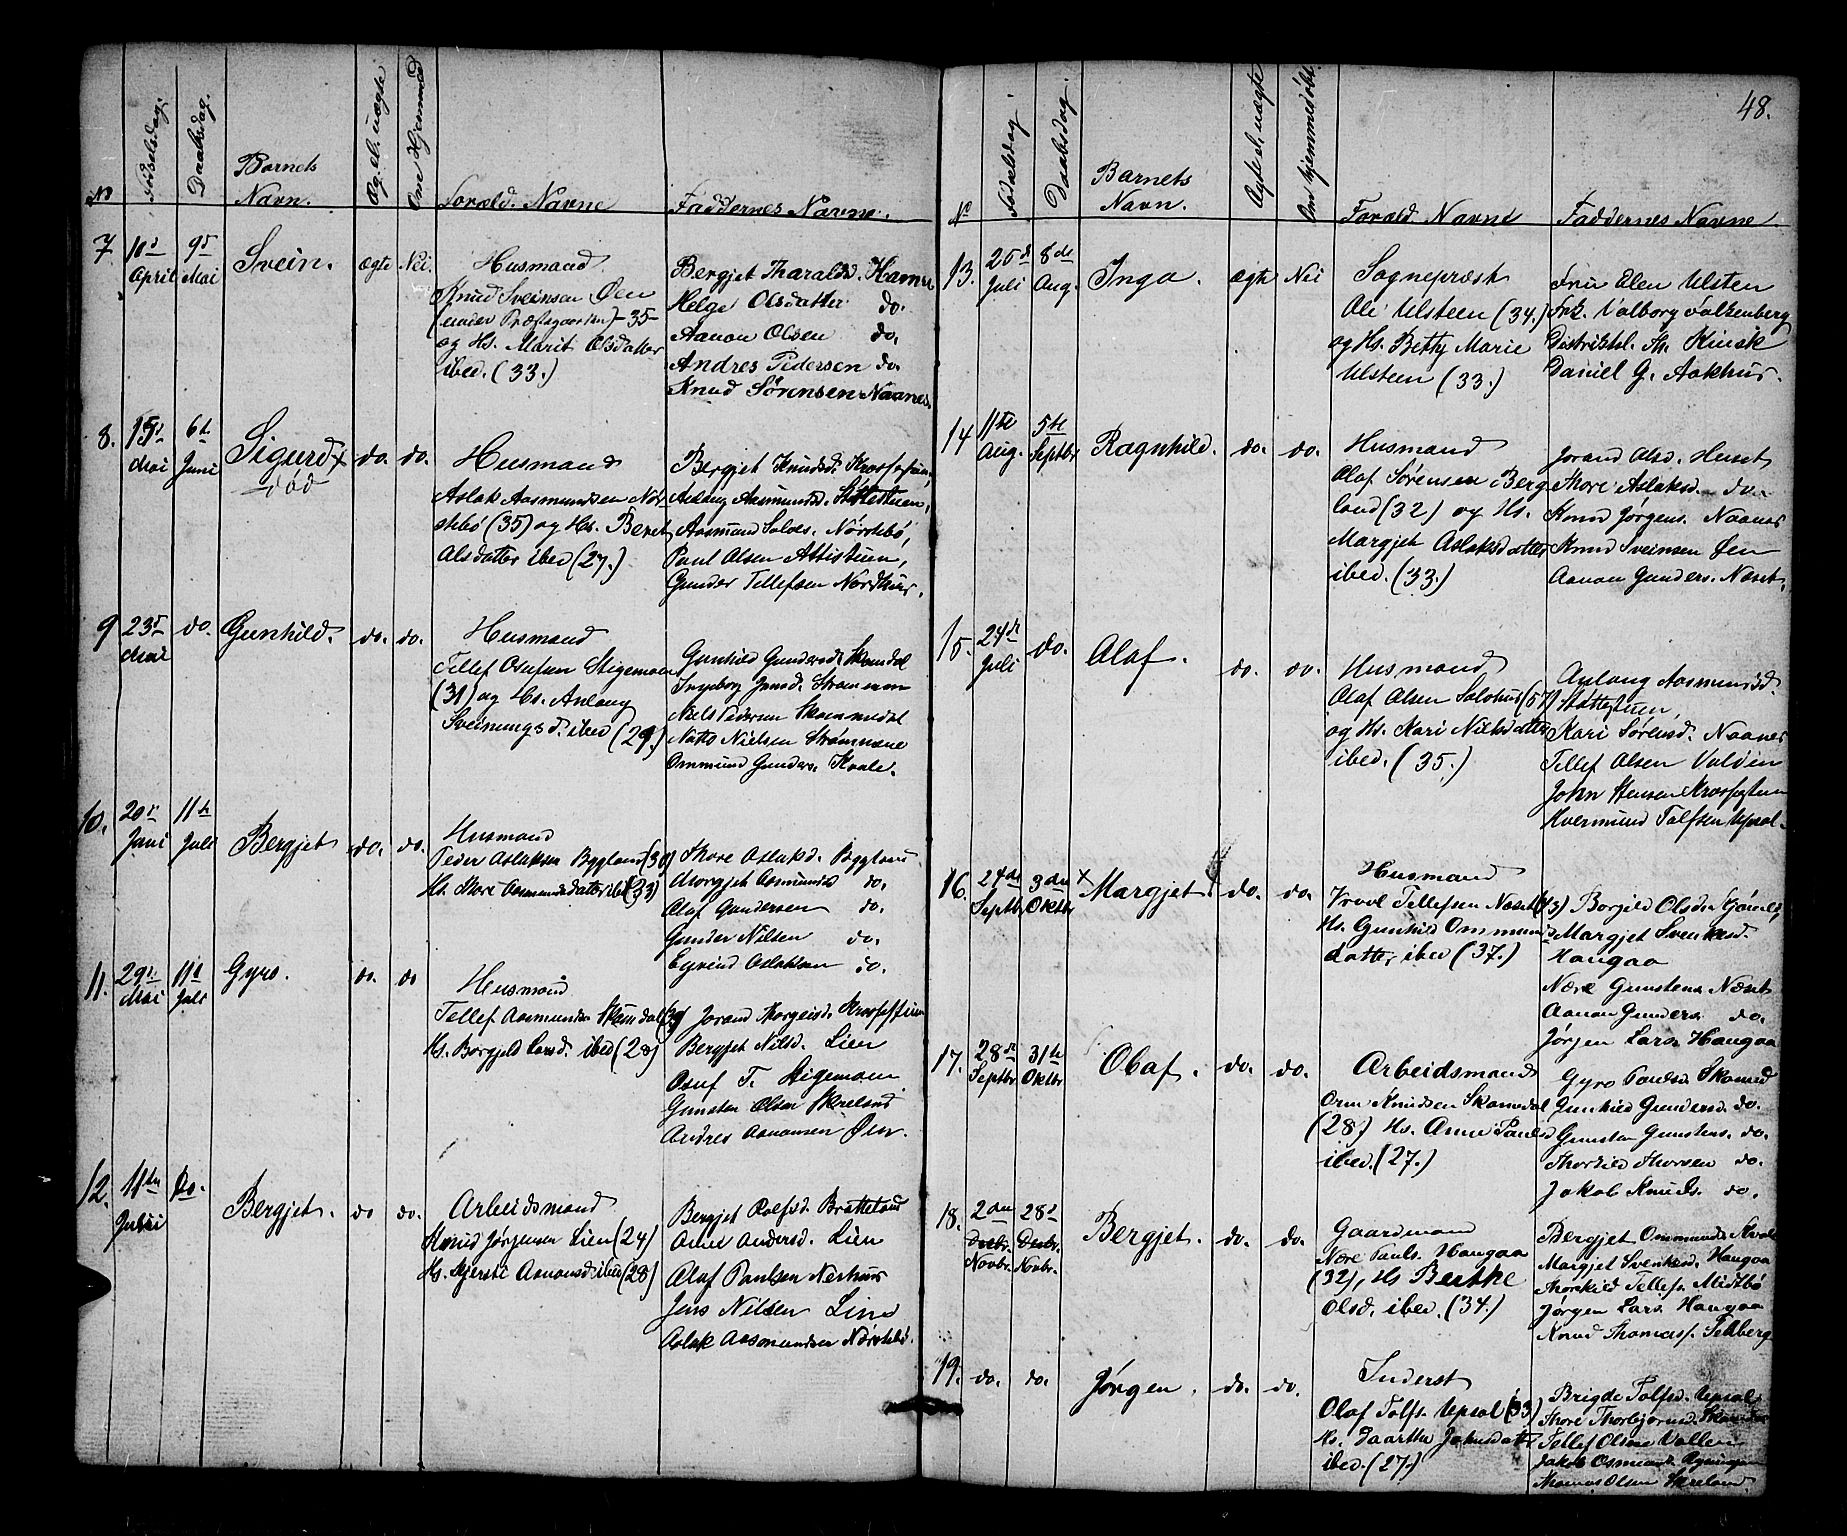 No
Fødselsdag.
Daabsdag.
Barnets
Navn.
Æg. el. uægte
Om Hjemmed
Foræld. Navne
Faddernes Navne.
7.
10d
April
9d
Mai
Svein.
ægte
Nei.
Husmand
Knud Sveinsen Øen
(under Præstegaarden) -35-
og Hs. Marit Olsdatter
ibed. (33.)
Bergjet Tharaldsd. Hamre
Helge Olsdatter do.
Aanon Olsen do.
Andres Pedersen do.
Knud Sørensen Naanes.
8.
Mai
6te
Juni
Sigurd x
død
do.
do.
Husmand
Aslak Aasmundsen Nør-
stebø (35) og Hs. Beret
Olsdatter ibed (27.)
Bergjet Knudsd.
Aslaug Aasmundsd. Støttestuen,
Aasmund Nørstebø,
Paul Olsen
Gunder Tellefsen Nordhus.
9
23d
Mai
do.
Gunhild.
do.
do.
Husmand
Tellef Osufsen Stigemoen
(31) og Hs. Anlaug
Sveinungsd. ibed (29.)
Gunhild Gundersd. Skomdal
Ingeborg
Niels Pedersen Skommedal
Nielsen
Ommund Gunders. Kvale.
10.
20d
Juni
11te
Juli
Bergjet
do.
do.
Husmand
Peder Aslaksen Bygland (30)
Hs. Thore Aasmundsdatter ibed (33)
Thore Aslaksd. Bygland
Margjet Aasmundsd. do.
Olaf Gundersen do.
Gunder Nilsen do.
Eyvind Aslaksen do.
11.
29d
Mai
11d
Juli
Gyro.
do.
do
Husmand
Tellef Aasmunds. Skomdal
Hs. Borgjeld Larsd. ibed (28)
Jorand
Bergjet Nilsd. Lien
Osuf T. Stigemoen
Gunsten Olsen Skreland
Andres Aanonsen Øen.
12.
11te
Do.
Bergjet.
do
do.
Arbeidsmand
Knud Jørgensen Lien (24)
Hs. Kjersti Aanonsd. ibed (28)
Bergjet Rolfsd. Bratteland
Anne Andersd. Lien
Olaf Paulsen Nerhus
Jens Nilsen Lien
Aslak Aasmundsen Nørstebø.
48.
No
Fødselsdag
Daabsdag.
Barnets
Navn.
Ægte el. uægte
Om hjemmedøbt.
Foræld. Navne
Faddernes Navne.
13.
Juli
8de
Aug.
Inga.
ægte
Nei
Sognepræst
Ole Ulsteen (34.)
og Hs. Betty Marie
Ulsteen (33.)
Fru Elen Ulsten
Frk. Valborg Falkenberg
Distriktsl. Th. Kinck
Daniel G. Aakhus.
14
11te
Aug.
5te
Septbr
Ragnhild.
do.
do.
Husmand
Olaf Sørensen Berg
land (32) og Hs.
Margjet Aslaksdatter
ibed. (33.)
Jorand Olsd. Huset
Thore Aslaksd. do.
Knud Jørgens. Naanes
Knud Sveinsen Øen
Aanon Gunders. Næset.
15.
24de
Juli
do.
Olaf.
do.
do.
Husmand
Olaf Olsen Solohus (57)
og Hs. Kari Nielsdatter
ibed. (35.)
Aslaug Aasmundsd.
Støttestuen,
Kari Sørensd. Naanes
Tellef Olsen
John
Tolfsen Upsal.
16.
24de
Septbr
3die
Oktbr
x Margjet.
do.
do.
Husmand
Vrool Tellefsen Næset (43)
Hs. Gunhild Ommunds
datter ibed (37.)
Borgild Olsd.
Margjet Svenkesd.
Haugaa
Nære Gunstens. Næset
Aanon Gunders. do.
Jørgen Lars. Haugaa
17.
28de
Septbr.
31te
Oktbr
Olaf.
do.
do.
Arbeidsmand
Orm Knudsen Skomedal
(28) Hs. Anne Paulsd
ibed. (27.)
Gyro Paulsd. Skomed
Gunhild Gundersd. do.
Gunsten Gunstens. do.
Thorkild Thorsen do.
Jakob Knuds. do.
18.
2den
Decbr.
Novbr.
28d
Decbr.
Novbr.
Bergjet.
do.
do.
Gaardmand
Nære Pauls. Haugaa
(32), Hs Berthe
Olsd. ibed. (34.)
Bergjet Ommundsd. Kvale
Margjet Svenkesd. Haugaa
Thorkild Tellefs. Midtbø
Jørgen Lars. Haugaa
Knud Thomass.
19.
do.
do.
Jørgen.
do.
do.
Inderst
Olaf Tolfs. Upsal (33)
Hs. Johnsdatter
ibed. (27.)
Brigde Tolfsd. Upsal
Thore Thorbjørnsd.
Tellef Olsen
Jakob
Thomas Olsen Skreland.